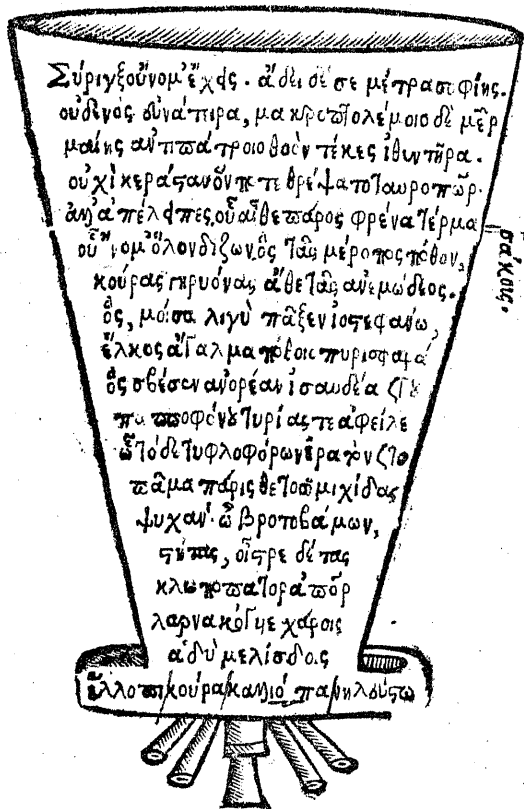 Σύριγξ οὔνομ' ἔχεις. ἄδει δέ σε μέτρα σοφίης.
οὐδενὸς εὐνάτειρα, μακροπτολέμοιο δὲ μῆρ
μαίης ἀντιπάτροιο θοὸν τέκες ἰθυντῆρα.
οὐχὶ κεράσταν ὅν ποτε θρέψατο ταυροπῶρ.
πέλιπες, οὗ αἶθε πάρος φρένα τέρμα
σάκους.
οὔνομ' ὅλον δίζων, ὃς τᾶς μέροπος πόθον,
κούρας γηρυόνας ἄθε τᾶς ἀνεμώδεος.
ὃς, μοίσα λιγὺ πᾶξεν ἰοστεφάνω,
ἕλκος ἄγαλμα πόθοιο πυρισφαρά
ὃς σβέσεν ἀνορέαν ἰσαυδέα
παπποφόνου τυρίας τε ἀφείλε
ᾧ τόδε τυφλοφόρων ἐρατὸν
πᾶμα πάρις θέτο σιμιχίδας
ψυχὰν ὦ βροτοβάμων,
στήτας, οἶστρε δέτας
κλωποπάτορ ἀπῶρ
λαρνακόγυιε χάροις
ἁδὺ μελίσδοις
ἔλλοπι κούρα καλλιόπα νηλεύστω